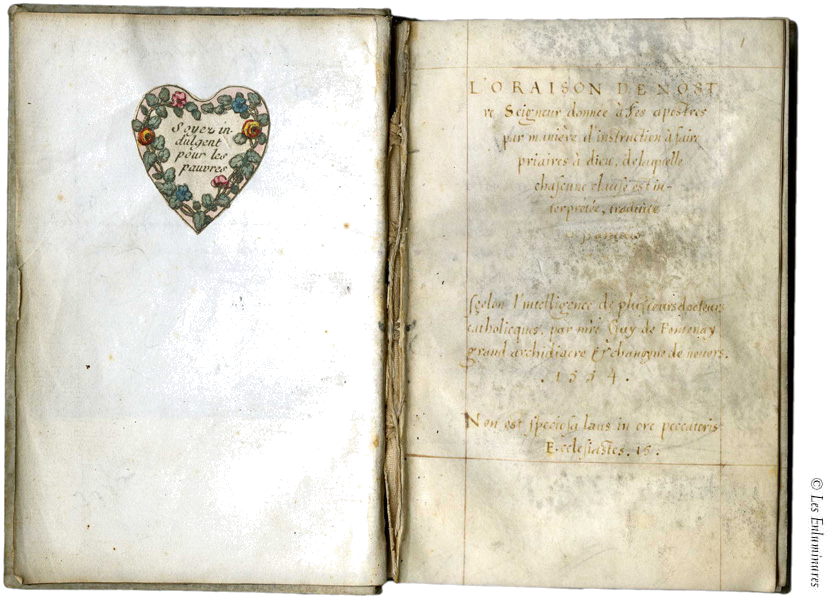 Soyez in-
dulgent
pour les
pauvres
1
L'ORAISON DE NOST
re Seigneur donnee à ses apostres
par manière d'instruction à faire
priaires à dieu, de laquelle
chascune clause est in-
terpretée, traduite
selon l'intelligence de plusieurs docteurs
catholicques, par mre Guy de Fontenay
grand archidiacre & chanoyne de nevers.
.1554.
Non est speciosa laus in ore peccatoris
Ecclesiastes. 15.
© Les Enluminures